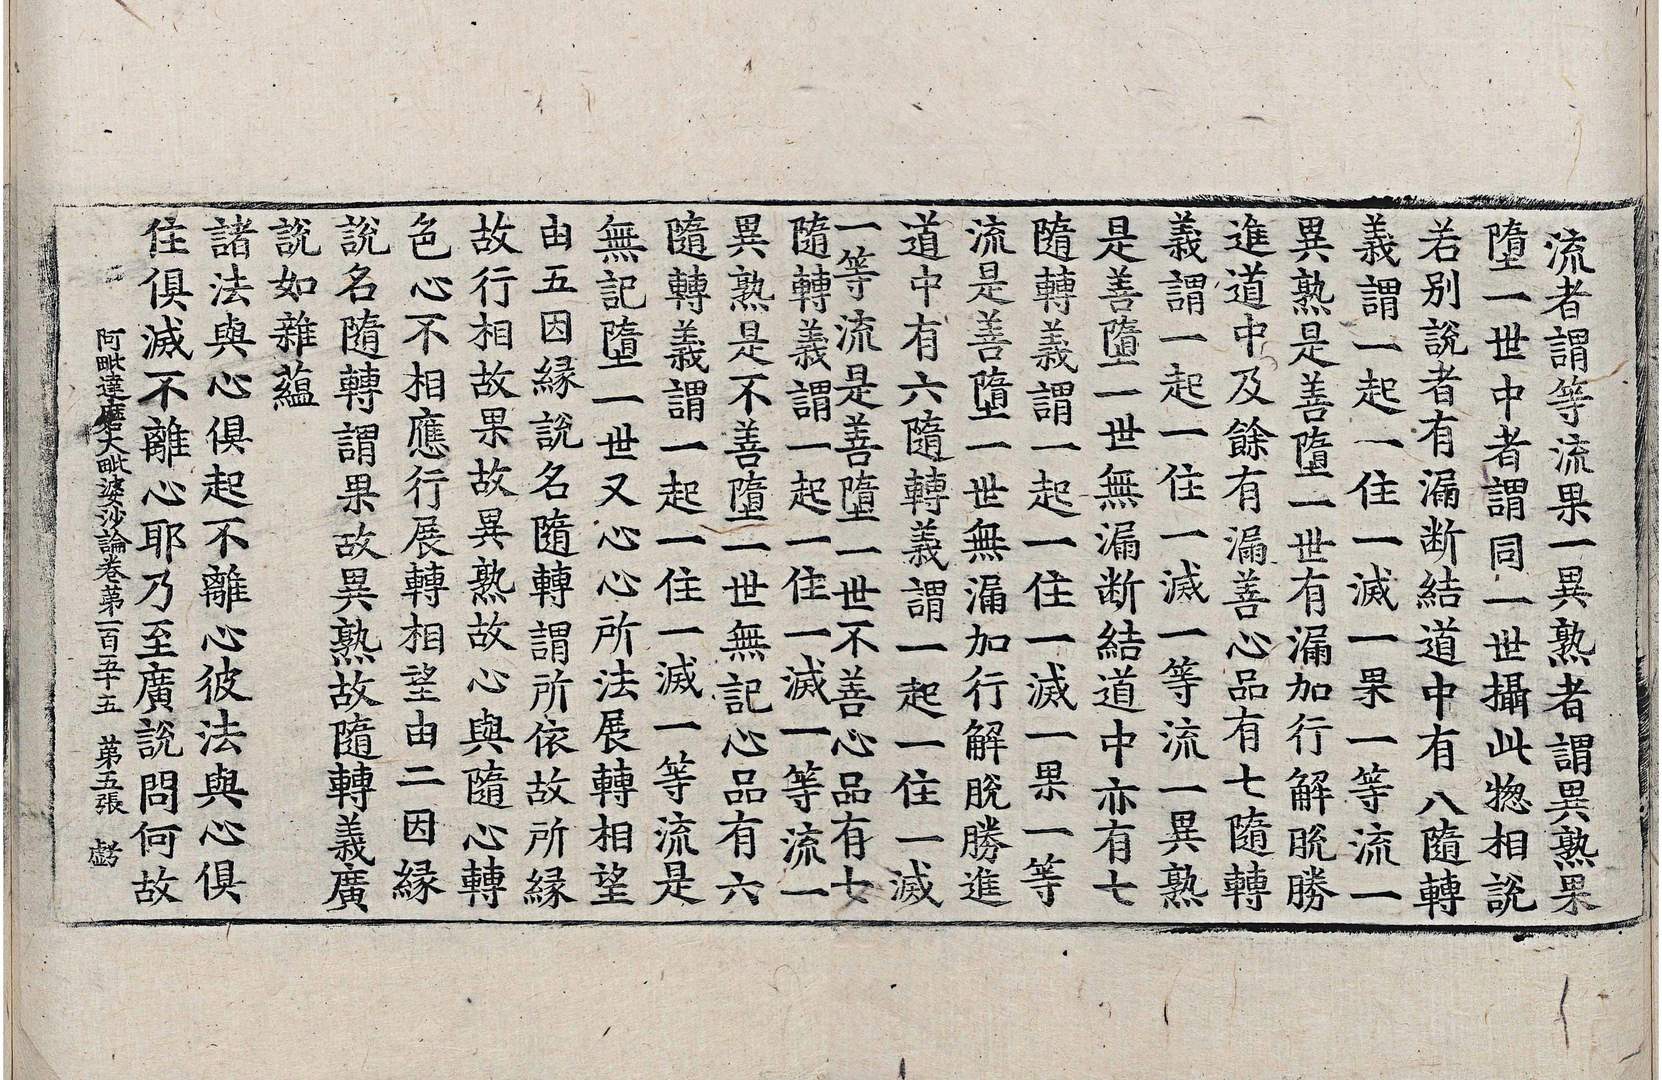 流者謂等流果一異熟者謂異熟果
墮一世中者謂同一世攝此惣相說
若別說者有漏断結道中有八隨轉
義謂一起一住一滅一果一等流一
異熟是善墮一世有漏加行解脫勝
進道中及餘有漏善心品有七隨轉
義謂一起一住一滅一等流一異熟
是善墮一世無漏断結道中亦有七
隨轉義謂一起一住一滅一果一等
流是善墮一世無漏加行解脫勝進
道中有六隨轉義謂一起一住一滅
一等流是善墮一世不善心品有七
隨轉義謂一起一住一滅一等流一
異熟是不善墮一世無記心品有六
隨轉義謂一起一住一滅一等流是
無記墮一世又心心所法展轉相望
由五因緣說名隨轉謂所依故所緣
故行相故果故異熟故心與隨心轉
色心不相應行展轉相望由二因緣
說名隨轉謂果故異熟故隨轉義廣
說如雜蘊
諸法與心俱起不離心彼法與心俱
住俱滅不離心耶乃至廣說問何故
阿毗達磨大毗婆沙論卷第一百五十五 第五張